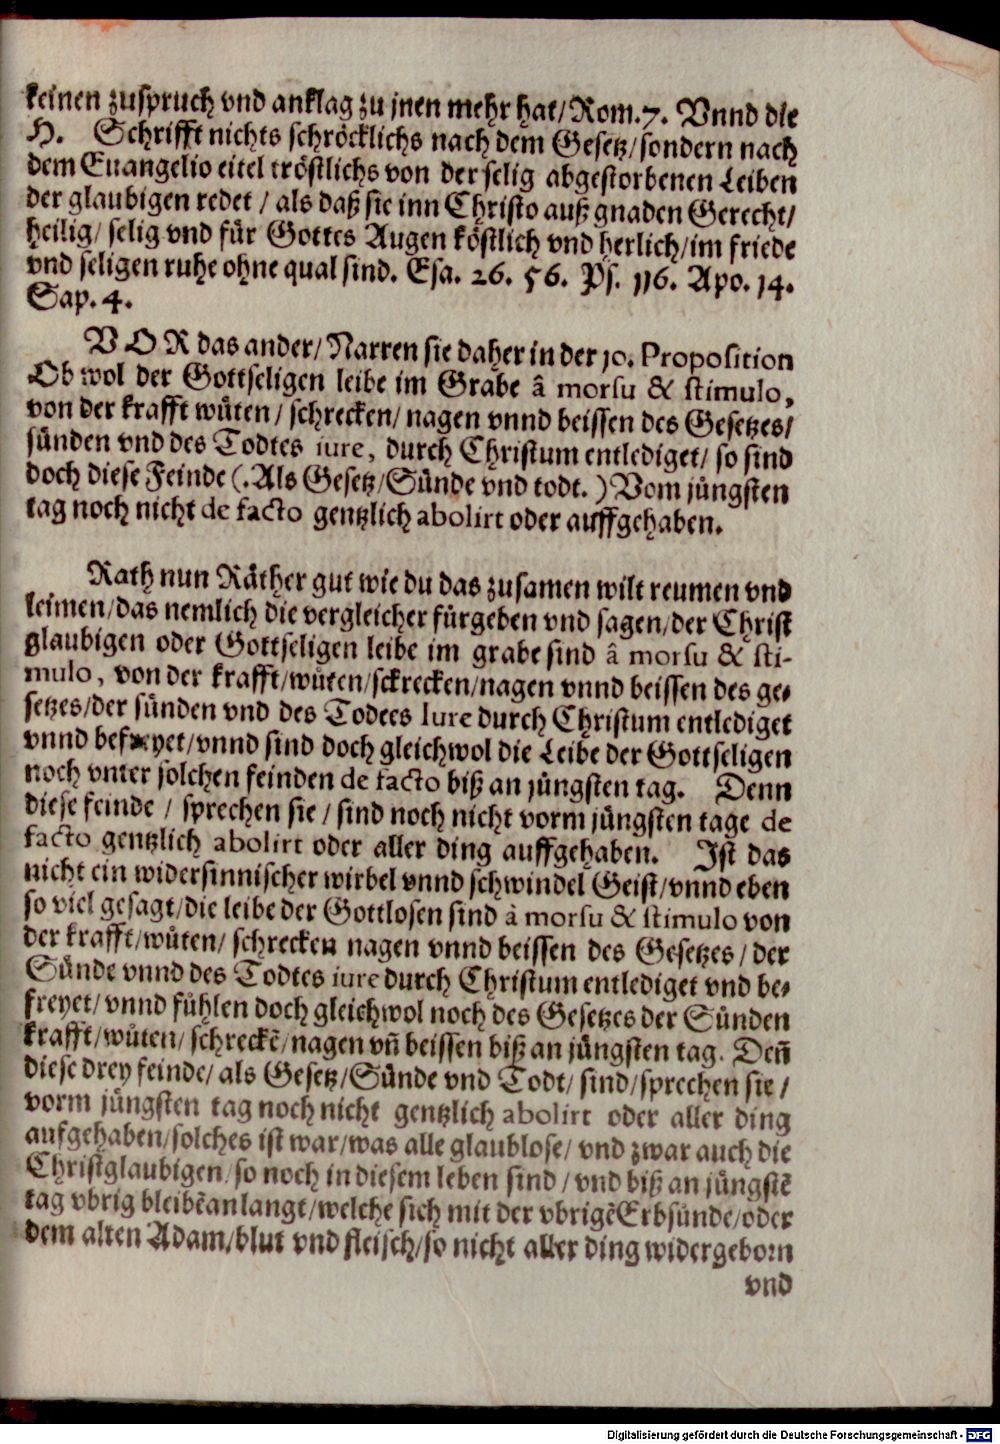 keinen zuspruch vnd anklag zu jnen mehr hat/ Rom. 7. Vnnd die
H. Schrifft nichts schröcklichs nach dem Gesetz/ sondern nach
dem Euangelio eitel tröstlichs von der selig abgestorbenen Leiben
der glaubigen redet / als daß sie inn Christo auß gnaden Gerecht/
heilig/ selig vnd für Gottes Augen köstlich vnd herlich/ im friede
vnd seligen ruhe ohne qual sind. Esa. 26. 56. Ps. 116. Apo. 14.
Sap. 4.
VOR das ander/ Narren sie daher in der 10. Proposition
Ob wol der Gottseligen leibe im Grabe â morsu & stimulo,
von der krafft wůten / schrecken/ nagen vnnd beissen des Gesetzes/
sünden vnd des Todtes iure, durch Christum entlediget/ so sind
doch diese Feinde (. Als Gesetz/ Sünde vnd todt. ) Vom jüngsten
tag noch nicht de facto gentzlich abolirt oder auffgehaben.
Rath nun Räther gut wie du das zusamen wilt reumen vnd
leimen/ das nemlich die vergleicher fürgeben vnd sagen/ der Christ
glaubigen oder Gottseligen leibe im grabe sind â morsu & sti-
mulo, von der krafft/ wůten/ sckrecken/ nagen vnnd beissen des ge-
setzes/ der sünden vnd des Todees Iure durch Christum entlediget
vnnd befreyet/ vnnd sind doch gleichwol die Leibe der Gottseligen
noch vnter solchen feinden de facto biß an jüngsten tag. Denn
diese feinde / sprechen sie / sind noch nicht vorm jüngsten tage de
facto gentzlich abolirt oder aller ding auffgehaben. Ist das
nicht ein widersinnischer wirbel vnnd schwindel Geist/ vnnd eben
so viel gesagt/ die leibe der Gottlosen sind à morsu & stimulo von
der krafft/ wůten/ schrecken nagen vnnd beissen des Gesetzes / der
Sünde vnnd des Todtes iure durch Christum entlediget vnd be-
freyet/ vnnd fühlen doch gleichwol noch des Gesetzes der Sünden
krafft/ wůten/ schreckẽ/ nagen vñ beissen biß an jüngsten tag. Deñ
diese drey feinde/ als Gesetz/ Sünde vnd Todt/ sind/ sprechen sie /
vorm jüngsten tag noch nicht gentzlich abolirt oder aller ding
aufgehaben/ solches ist war/ was alle glaublose/ vnd zwar auch die
Christglaubigen/ so noch in diesem leben sind / vnd biß an jüngstẽ
tag vbrig bleibẽ anlangt/ welche sich mit der vbrigẽ Erbsünde/ oder
dem alten Adam/ blut vnd fleisch/ so nicht aller ding widergeborn
vnd
Digitalisierung gefördert durch die Deutsche Forschungsgemeinschaft - DFG